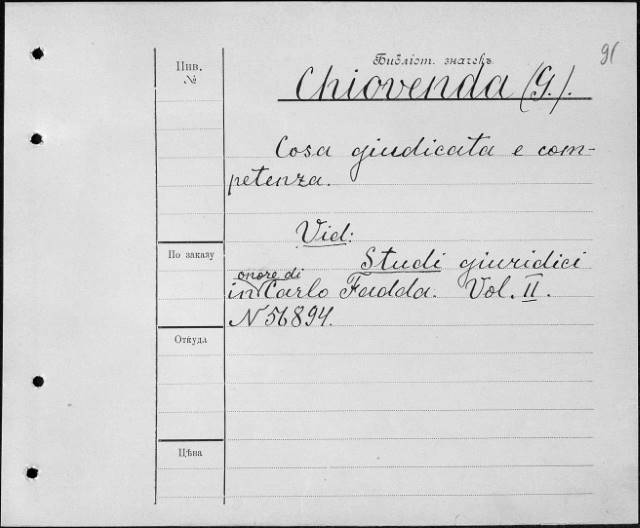 91
Библіот. значекъ
Инв.
№
Chiovenda (G.).
Cosa giudicata e com-
petenza.
Vid:
По заказу
Studi giuridici
onore di
in Carlo Fadda. Vol. II.
N 56894.
Откуда
Цѣна